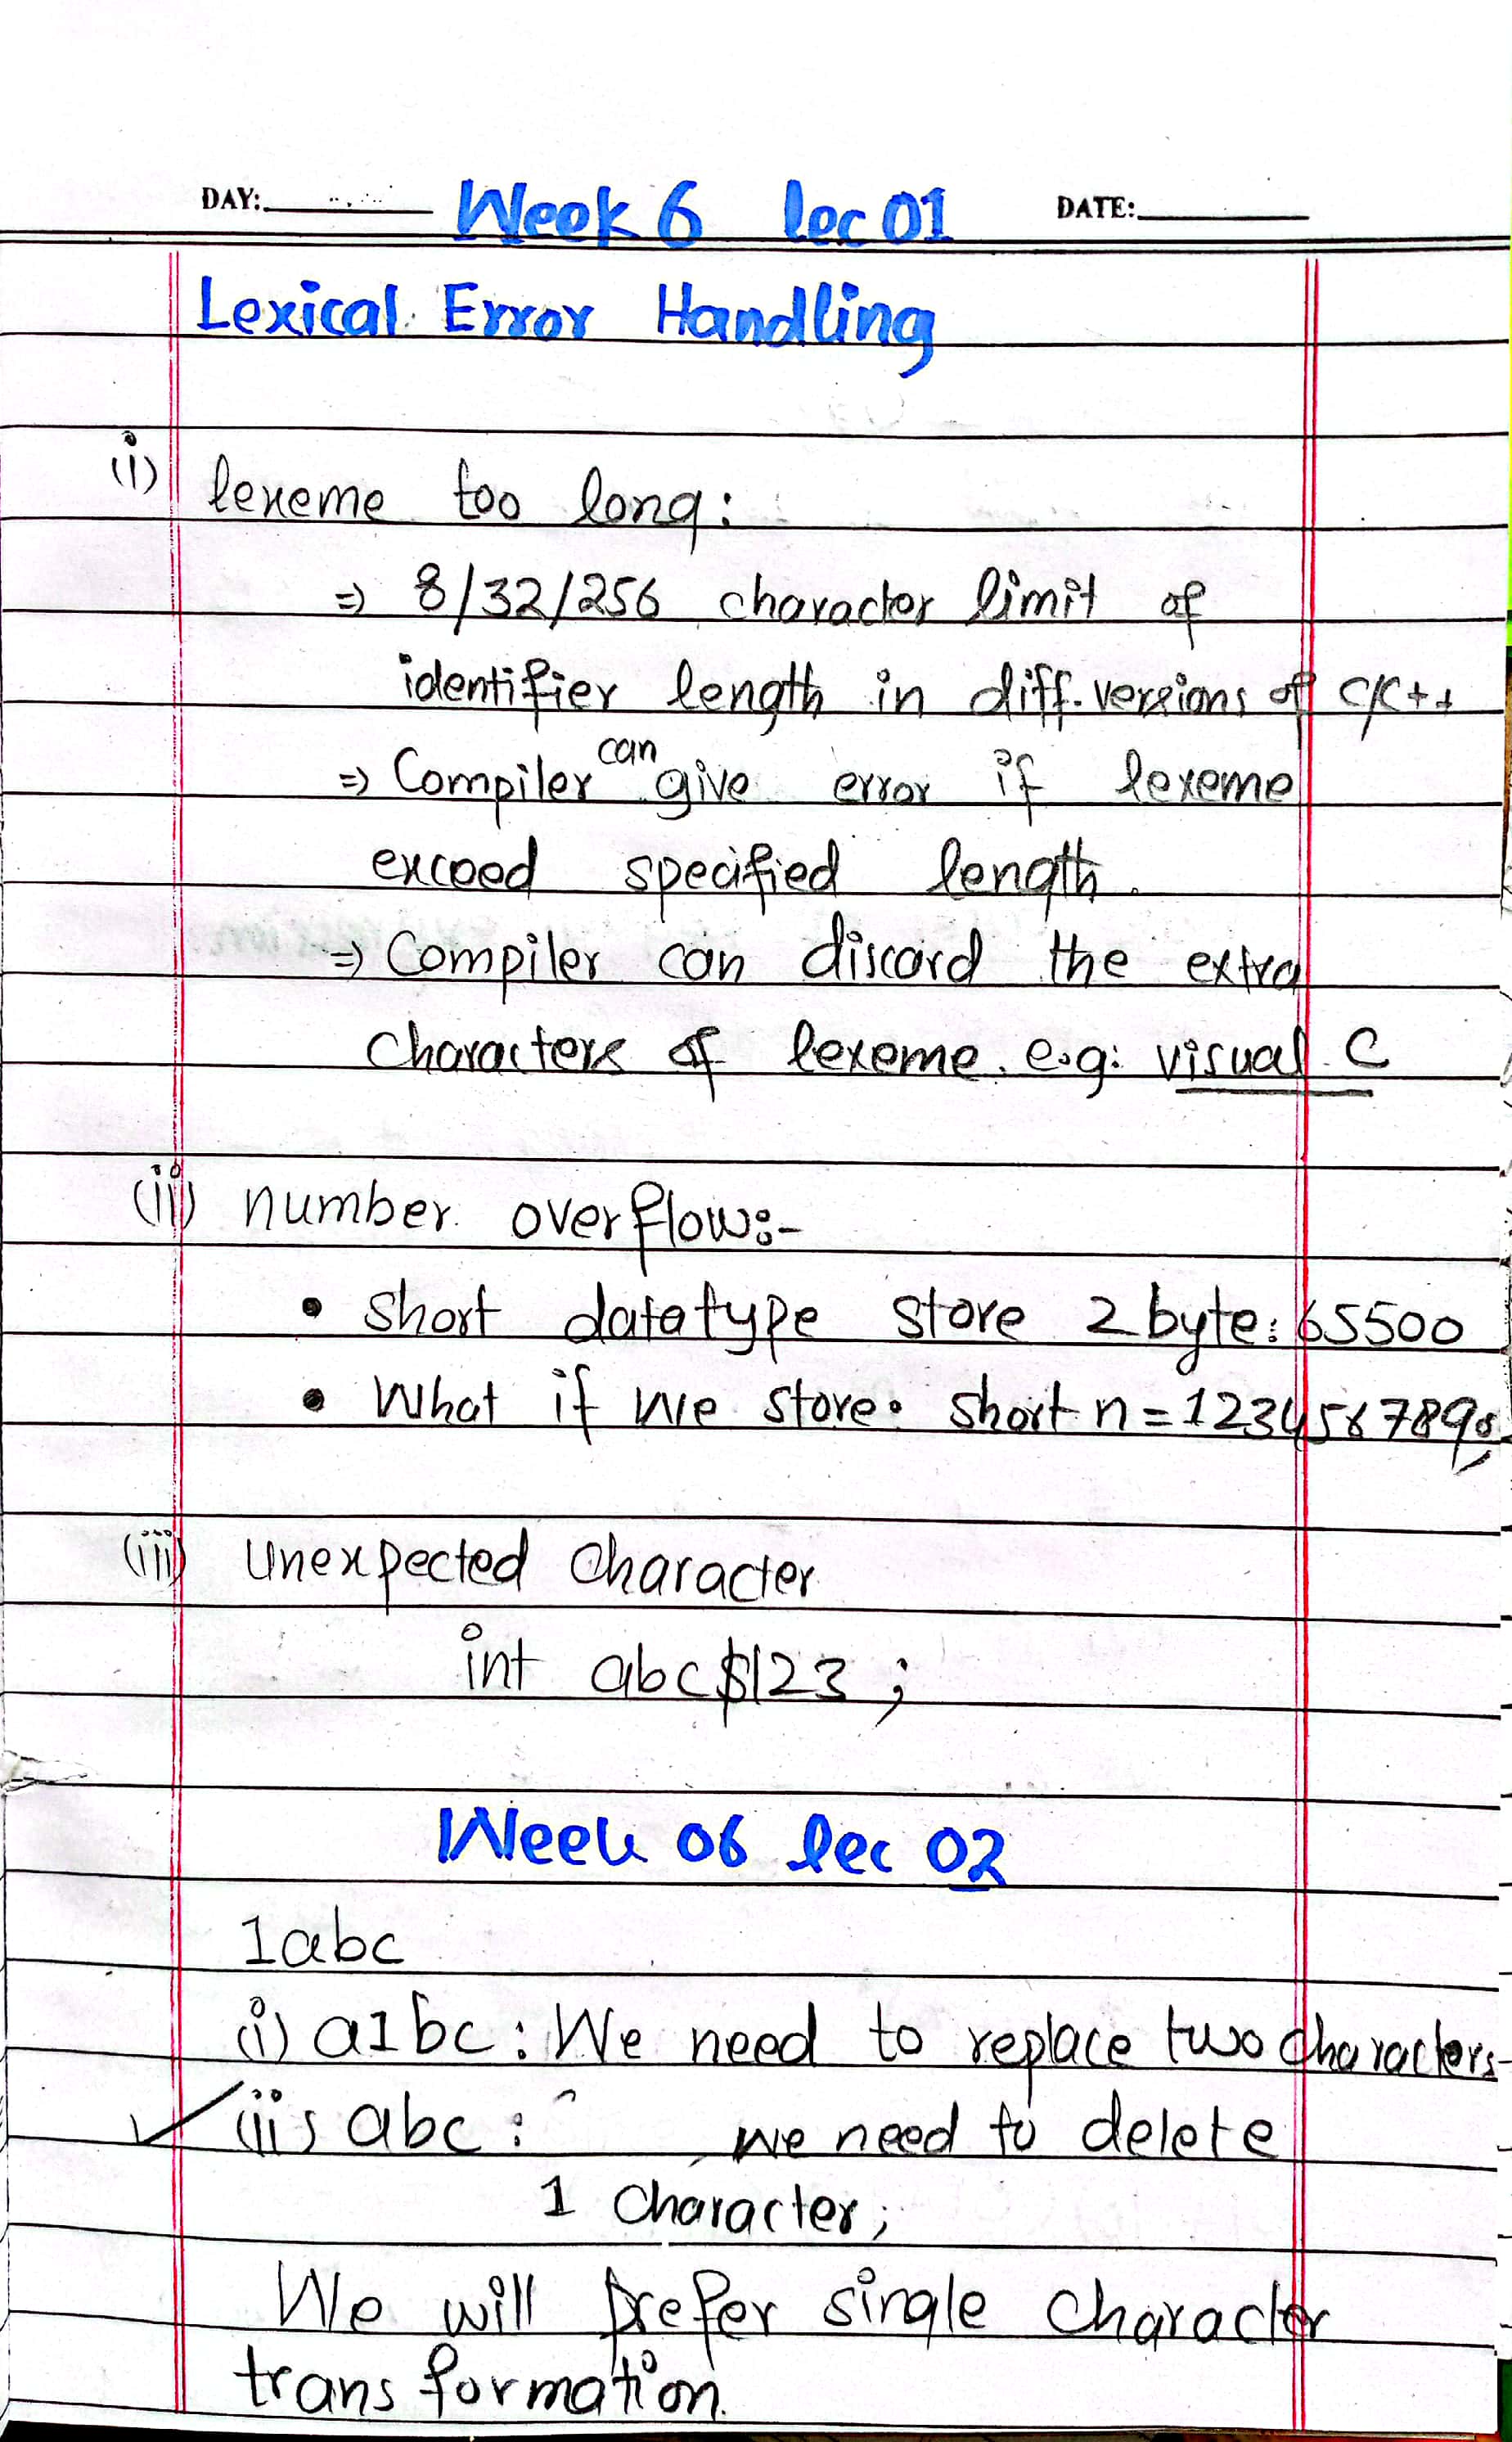 DAY: Week 6 lec 01 DATE:
Lexical Error Handling
(i) lexeme too long:
⇒ 8/32/256 character limit of
identifier length in diff. versions of C/C++
⇒ Compiler can give error if lexeme
exceed specified length.
⇒ Compiler can discard the extra
characters of lexeme. e.g: visual C
(ii) number overflow:-
• short datatype store 2 byte: 65500
• What if we store: short n = 1234567890;
(iii) Unexpected Character
int abc$123 ;
Week 06 lec 02
1abc
(i) a1bc : We need to replace two characters-
✓ (ii) abc : we need to delete
1 Character;
We will prefer single character
transformation.